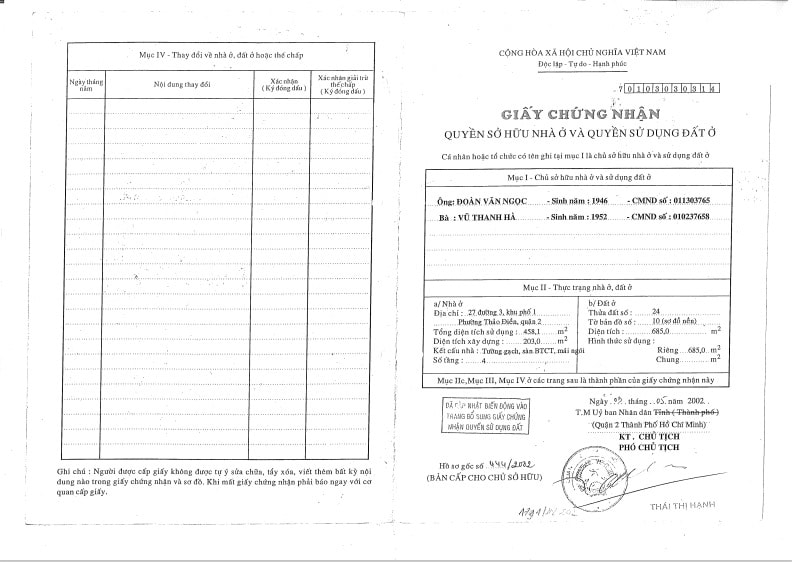 Mục IV - Thay đổi về nhà ở, đất ở hoặc thế chấp
Ngày tháng năm
Nội dung thay đổi
Xác nhận
( Ký đóng dấu )
Xác nhận giải trừ thế chấp
( Ký đóng dấu )
Ghi chú : Người được cấp giấy không được tự ý sửa chữa, tẩy xóa, viết thêm bất kỳ nội
dung nào trong giấy chứng nhận và sơ đồ. Khi mất giấy chứng nhận phải báo ngay với cơ
quan cấp giấy.
CỘNG HÒA XÃ HỘI CHỦ NGHĨA VIỆT NAM
Độc lập - Tự do - Hạnh phúc
7 0 1 0 3 0 3 0 3 1 4
GIẤY CHỨNG NHẬN
QUYỀN SỞ HỮU NHÀ Ở VÀ QUYỀN SỬ DỤNG ĐẤT Ở
Cá nhân hoặc tổ chức có tên ghi tại mục I là chủ sở hữu nhà ở và sử dụng đất ở
Mục I - Chủ sở hữu nhà ở và sử dụng đất ở
Ông: ĐOÀN VĂN NGỌC - Sinh năm : 1946 - CMND số : 011303765
Bà : VŨ THANH HÀ - Sinh năm : 1952 - CMND số : 010237658
Mục II - Thực trạng nhà ở, đất ở
a/ Nhà ở
Địa chỉ : 27 đường 3, khu phố 1
Phường Thảo Điền, quận 2
Tổng diện tích sử dụng : 458,1 m2
Diện tích xây dựng : 203,0 m2
Kết cấu nhà : Tường gạch, sàn BTCT, mái ngói
Số tầng : 4
b/ Đất ở
Thửa đất số : 24
Tờ bản đồ số : 10 (sơ đồ nền)
Diện tích : 685,0 m2
Hình thức sử dụng :
Riêng 685,0 m2
Chung m2
Mục IIc, Mục III, Mục IV ở các trang sau là thành phần của giấy chứng nhận này
ĐÃ CẬP NHẬT BIẾN ĐỘNG VÀO
TRANG BỔ SUNG GIẤY CHỨNG
NHẬN QUYỀN SỬ DỤNG ĐẤT
Ngày tháng 05 năm 2002
T.M Uỷ ban Nhân dân Tỉnh ( Thành phố )
(Quận 2 Thành Phố Hồ Chí Minh)
KT . CHỦ TỊCH
PHÓ CHỦ TỊCH
Hồ sơ gốc số 444/2002
(BẢN CẤP CHO CHỦ SỞ HỮU)
THÁI THỊ HẠNH